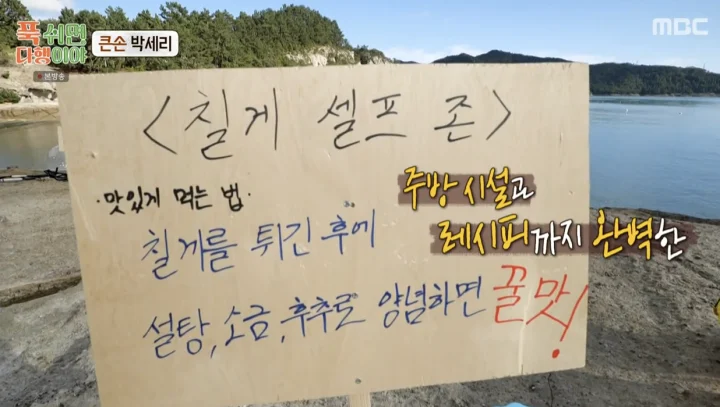 푹 쉬면
다행이야
본방송
큰손 박세리
MBC
<칠게 셀프 존>
·맛있게 먹는 법·
칠게를 튀긴 후에
설탕,소금,후추로 양념하면 꿀맛!
주방 시설과
레시피까지 완벽한